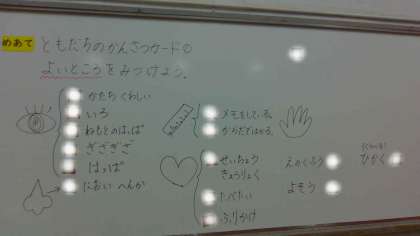 めあて ともだちのかんさつカードの
よいところをみつけよう。
かたち くわしい
いろ
ねもとのはっぱ
ぎざぎざ
はっぱ
におい へんか
メモをしている。
からだではかる。
せいちょう
きょうりょく
たべたい
ふりかけ
えのくふう
よそう
ひかく